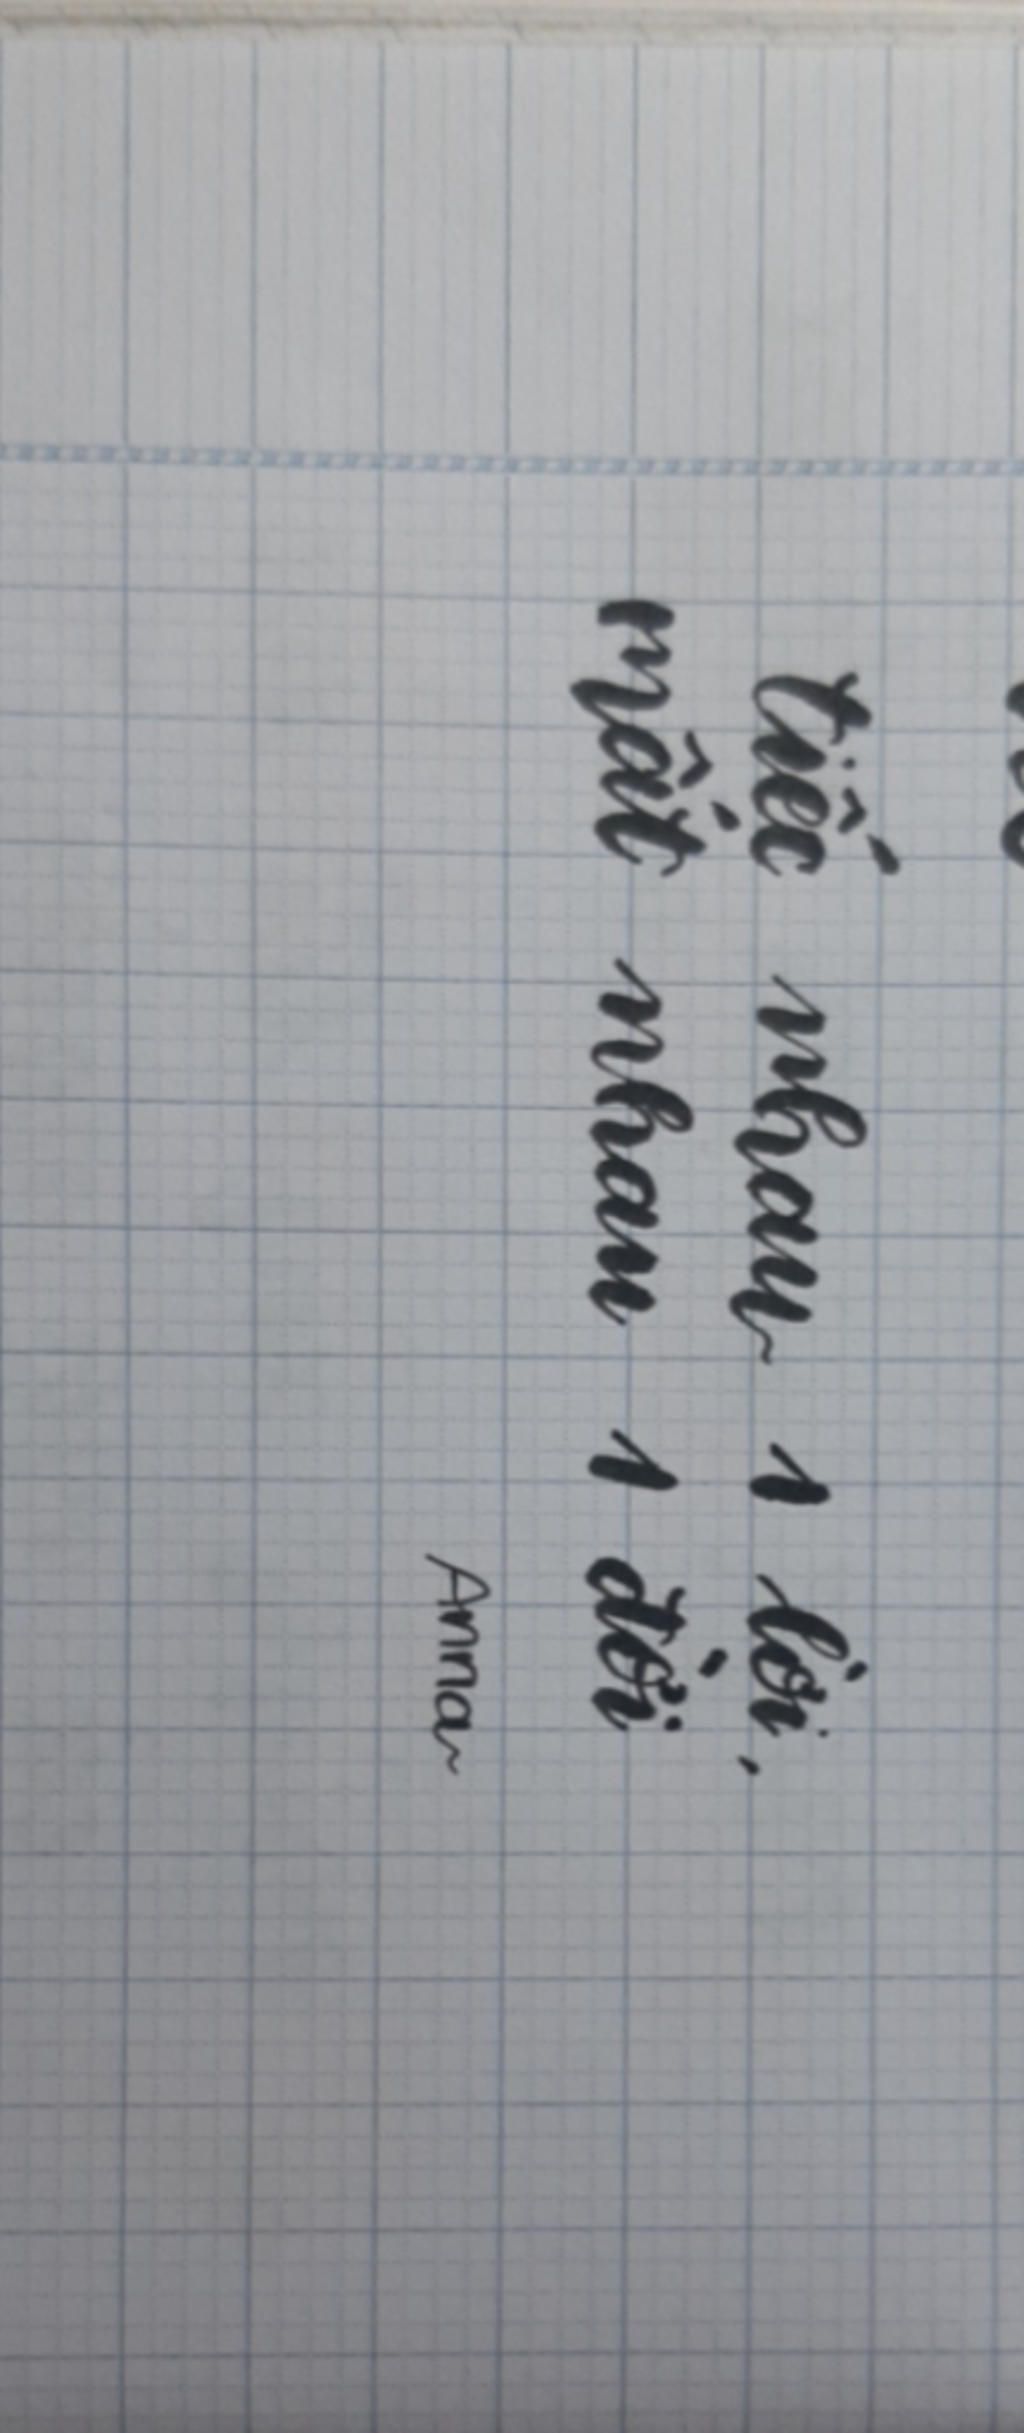 tiếc nhau 1 lời,
mất nhau 1 đời
Anna